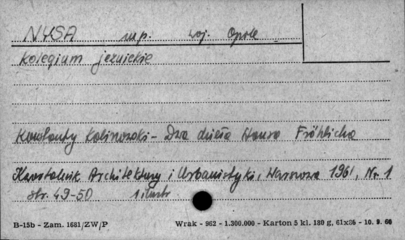 NYSA m.p. woj. Opole
kolegium jezuickie
Konstanty Kalinowski - Dwa dzieła Hansa Fröhlicha
Kwartalnik Architektury i Urbanistyki, Warszawa 1961, Nr. 1
str. 49-50 1 ilustr
B-15b - Zam. 1681/ZW/P Wrak - 962 - 1.300.000 - Karton 5 kl. 180 g, 61x86 - 10. 9. 66